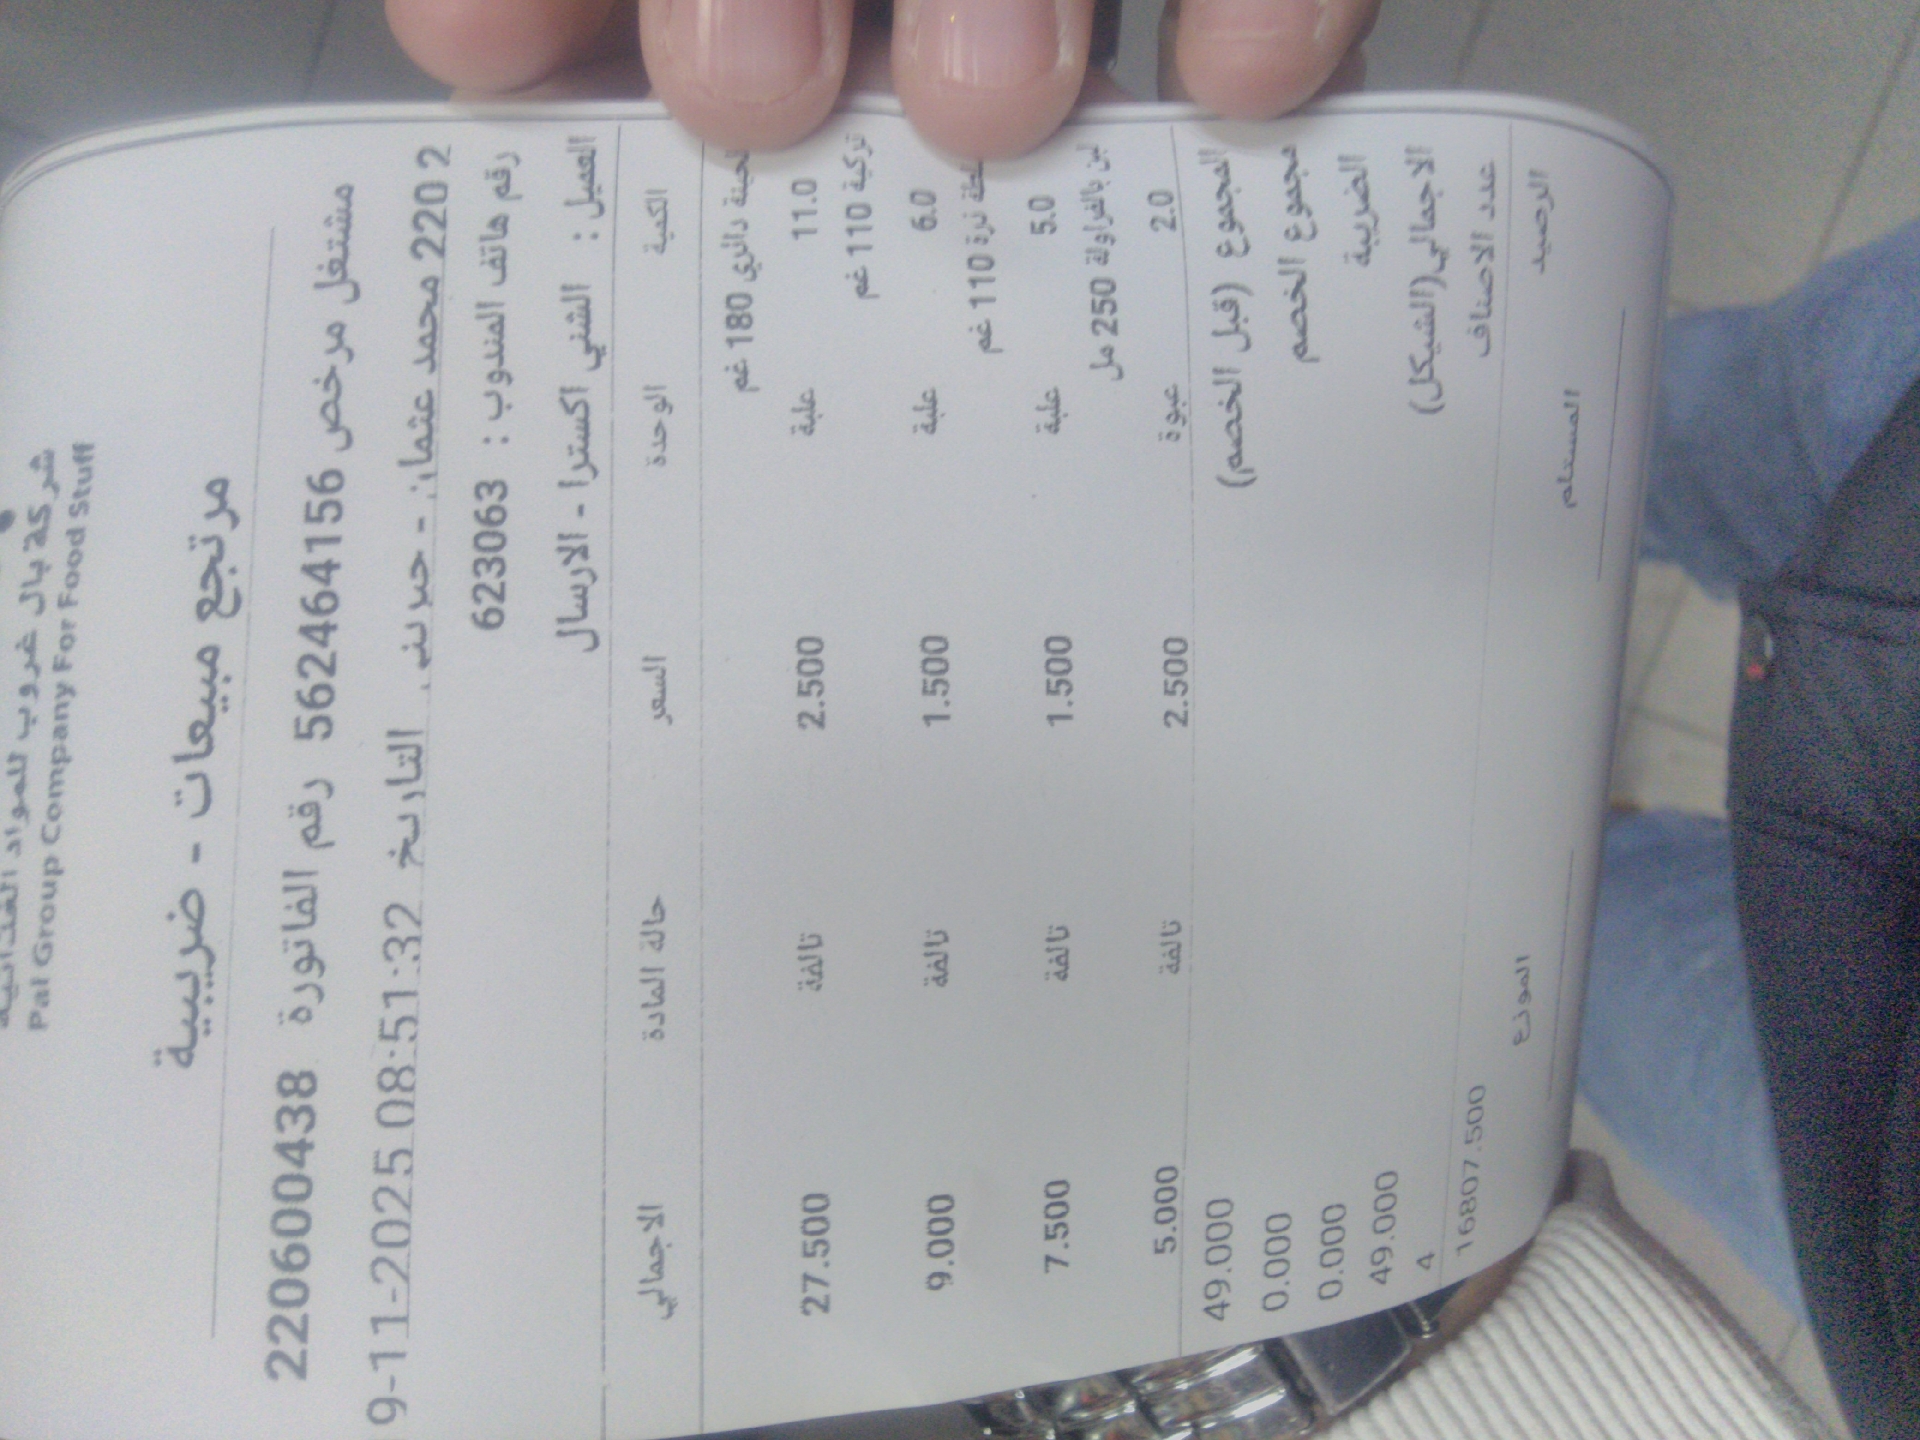 شركة بال غروب للمواد الغذائية
Pal Group Company For Food Stuff
مرتجع مبيعات - ضريبية
مشتغل مرخص 562464156 رقم الفاتورة 2206000438
2202 محمد عثمان - حمد التاريخ 9-11-2025 08:51:32
رقم هاتف المندوب : 6230063
العميل : الشني اكسترا - الارسال
الكمية الوحدة السعر حالة المادة الاجمالي
دائري 180 غم
11.0 علبة 2.500 تالفة 27.500
تركية 110 غم
6.0 علبة 1.500 تالفة 9.000
ذرة 110 غم
5.0 علبة 1.500 تالفة 7.500
لبن بالفراولة 250 مل
2.0 عبوة 2.500 تالفة 5.000
المجموع (قبل الخصم) 49.000
مجموع الخصم 0.000
الضريبة 0.000
الاجمالي(الشيكل) 49.000
عدد الاصناف 4
الرصيد 16807.500
المستلم المورع